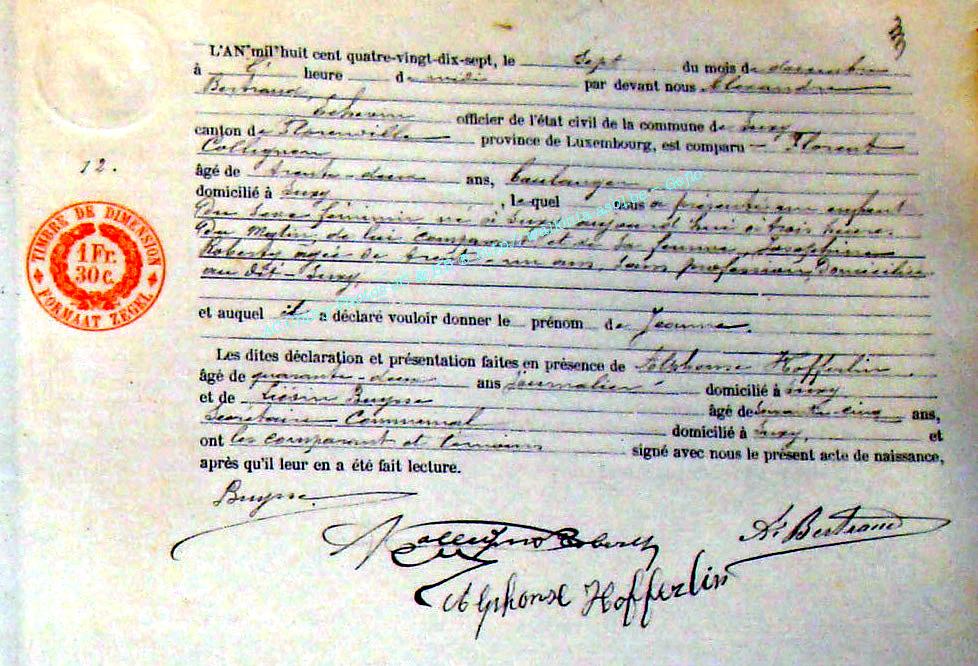 33
L'AN mil huit cent quatre-vingt-dix-sept, le Sept du mois de décembre
à heure de midi par devant nous Alexandre
Bertrand, Echevin officier de l'état civil de la commune de Suxy
canton de Florenville province de Luxembourg, est comparu Florent
Collignon
12.
âgé de trente-deux ans, boulanger,
domicilié à Suxy, lequel nous a présenté un enfant
Du Sexe féminin né à Suxy aujourd'hui à trois heures
Du Matin de lui comparant et de Sa femme, Joséphine
Roberty âgée de trente un ans, Sans profession, Domiciliée
au dit Suxy,
et auquel il a déclaré vouloir donner le prénom de Jeanne.
TIMBRE DE DIMENSION
1 Fr.
30 c.
FORMAAT ZEGEL
Les dites déclaration et présentation faites en présence de Alphonse Hofferlin
âgé de quarante-deux ans Journalier domicilié à Suxy
et de Buysse âgé de cinq ans,
Secrétaire Communal domicilié à Suxy, et
ont les comparant et témoins signé avec nous le présent acte de naissance,
après qu'il leur en a été fait lecture.
Buysse
Collignon Roberty
A. Bertrand
Alphonse Hofferlin